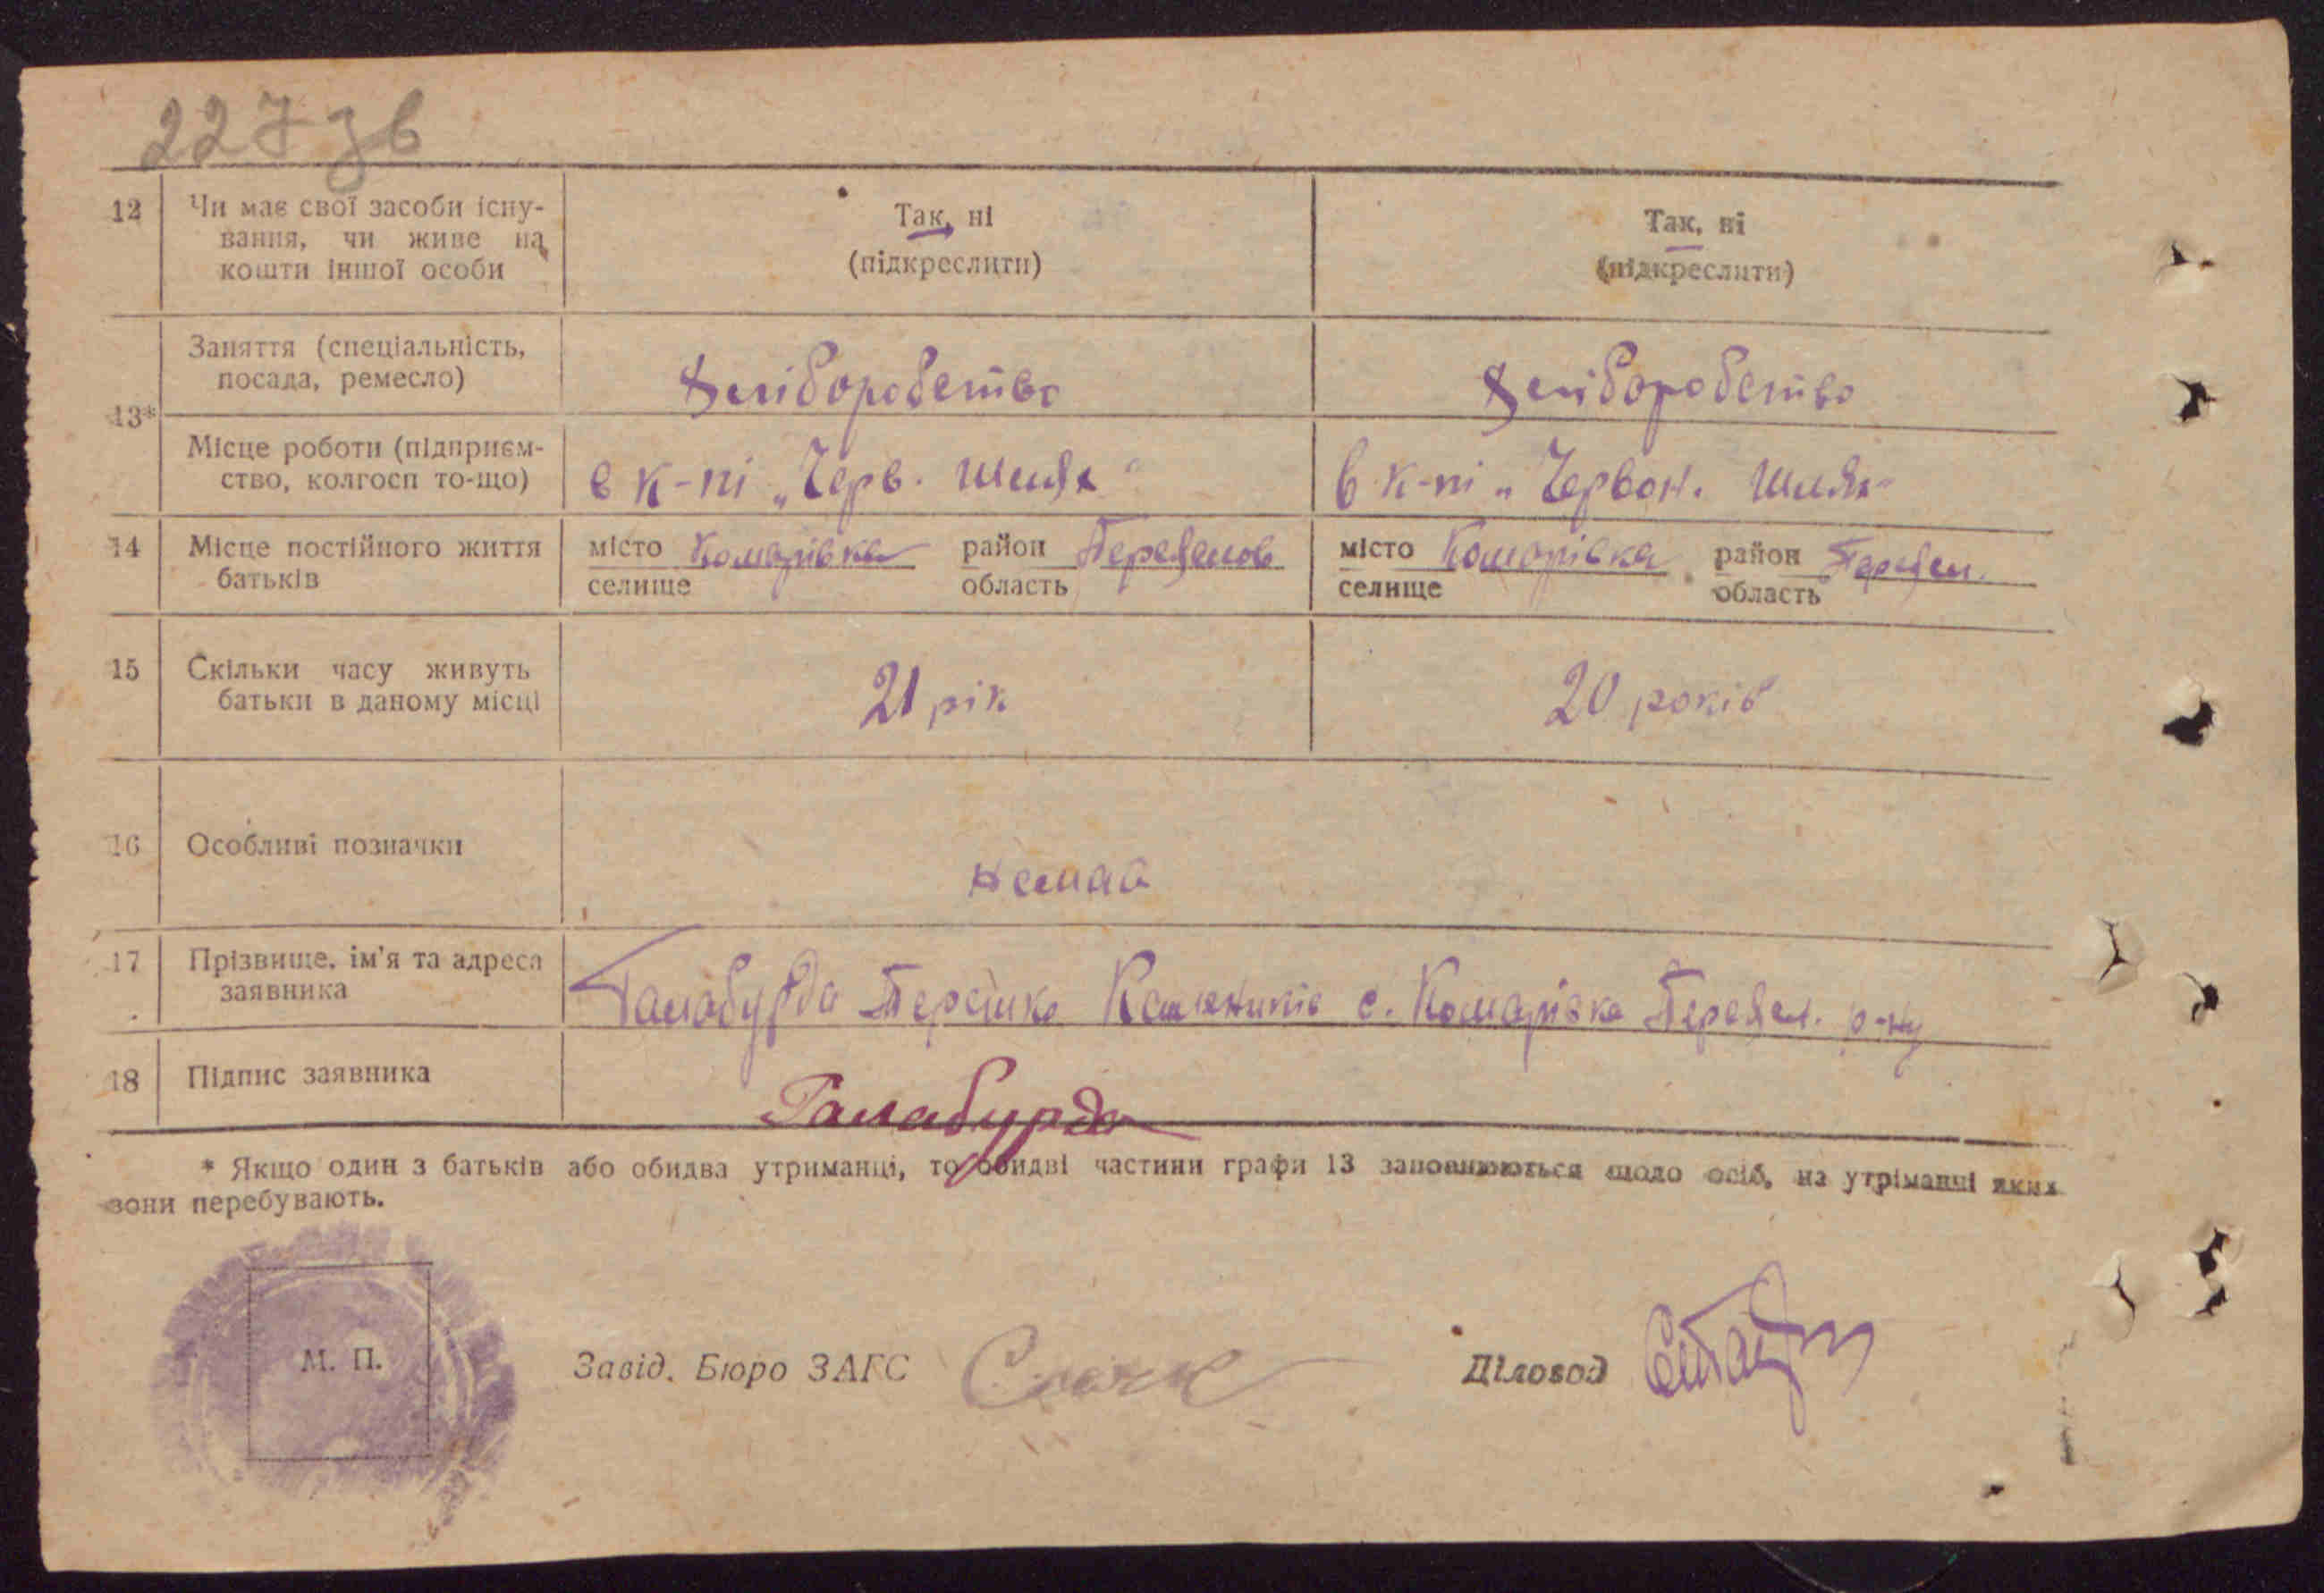 227 зв
12 Чи має свої засоби існу-
вання, чи живе на
кошти іншої особи
Так, ні
(підкреслити)
Так, ні
(підкреслити)
13*
Заняття (спеціальність,
посада, ремесло)
Хліборобство
Хліборобство
Місце роботи (підприєм-
ство, колгосп то-що)
в к-пі „Черв. Шлях"
в к-пі „Червон. Шлях"
14 Місце постійного життя
батьків
місто Комарівка район
селище область
місто Комарівка район
селище область
15 Скільки часу живуть
батьки в даному місці
21 рік
20 років
16 Особливі позначки
немає
17 Прізвище, ім'я та адреса
заявника
Галабурда с. Комарівка р-ну
18 Підпис заявника
Галабурда
* Якщо один з батьків або обидва утриманці, то обидві частини графи 13 заповнюються щодо осіб, на утріманні яких
вони перебувають.
М. П.
Завід. Бюро ЗАГС
Діловод